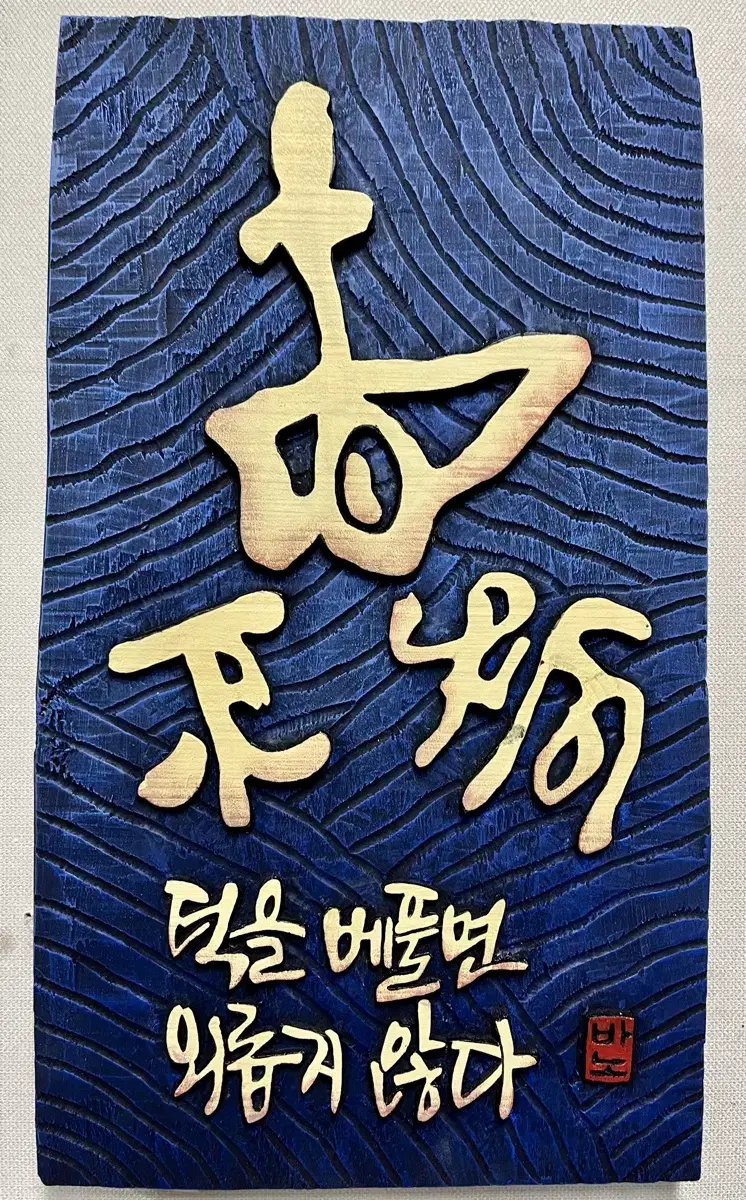 悳
不孤
덕을 베풀면
외롭지 않다